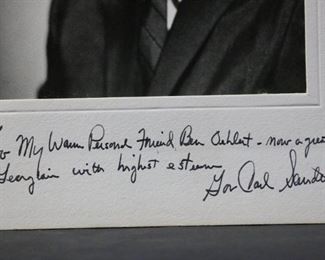 To My Warm Personal Friend Ben - now a great
Georgian with highest esteem
Gov Carl Sanders